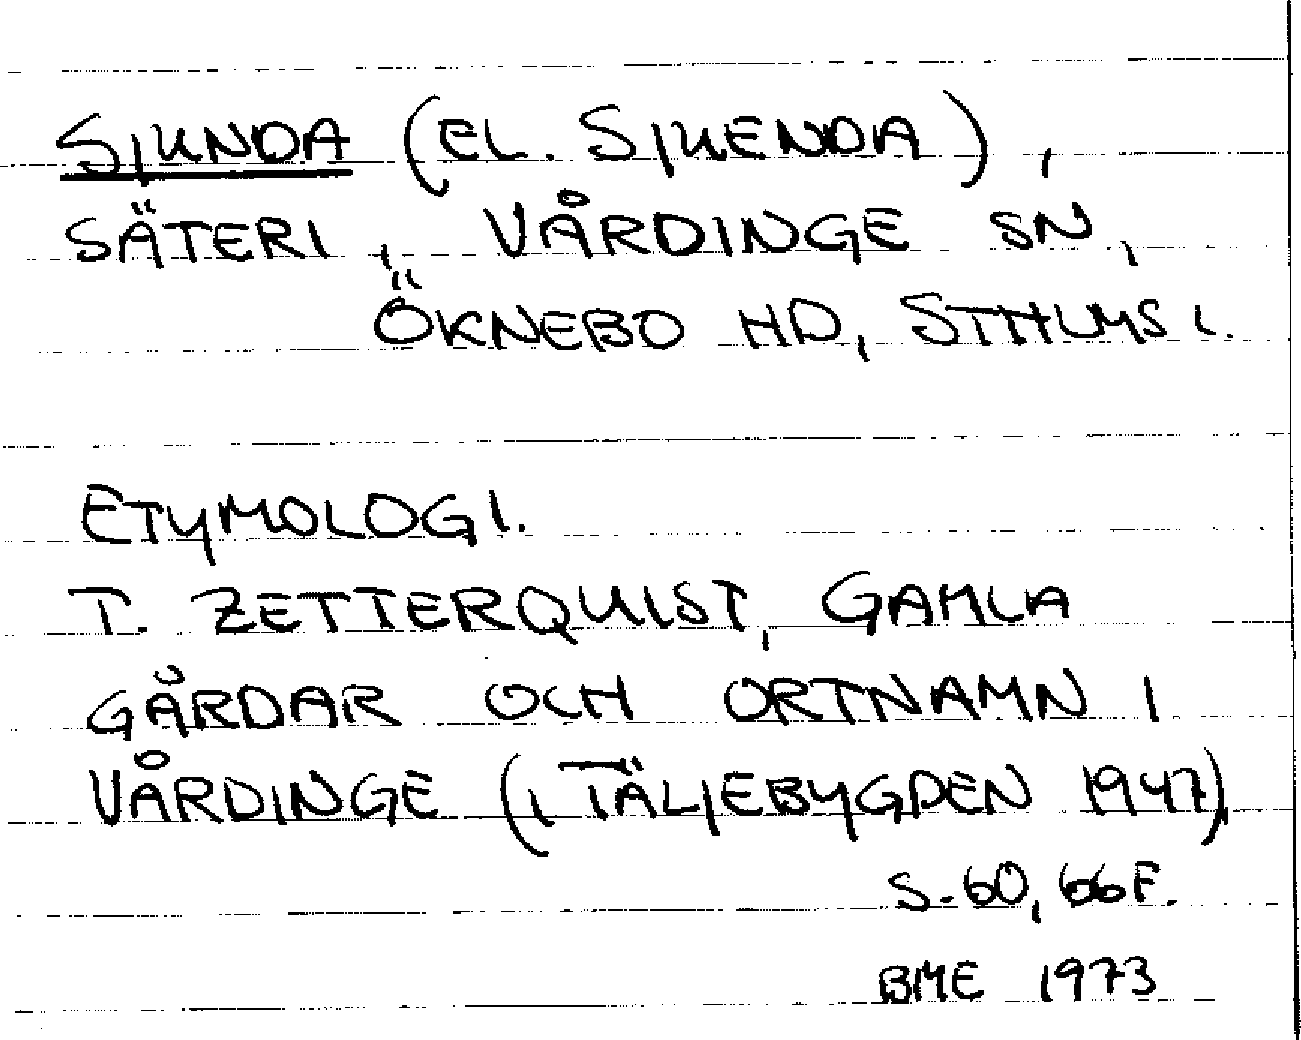 SJUNDA (EL. SJUENDA),
SÄTERI, VÅRDINGE SN,
ÖKNEBO HD, STHLMS L.
ETYMOLOGI.
T. ZETTERQUIST, GAMLA
GÅRDAR OCH ORTNAMN I
VÅRDINGE (I TÄLJEBYGDEN 1947),
S. 60, 66 F.
BME 1973